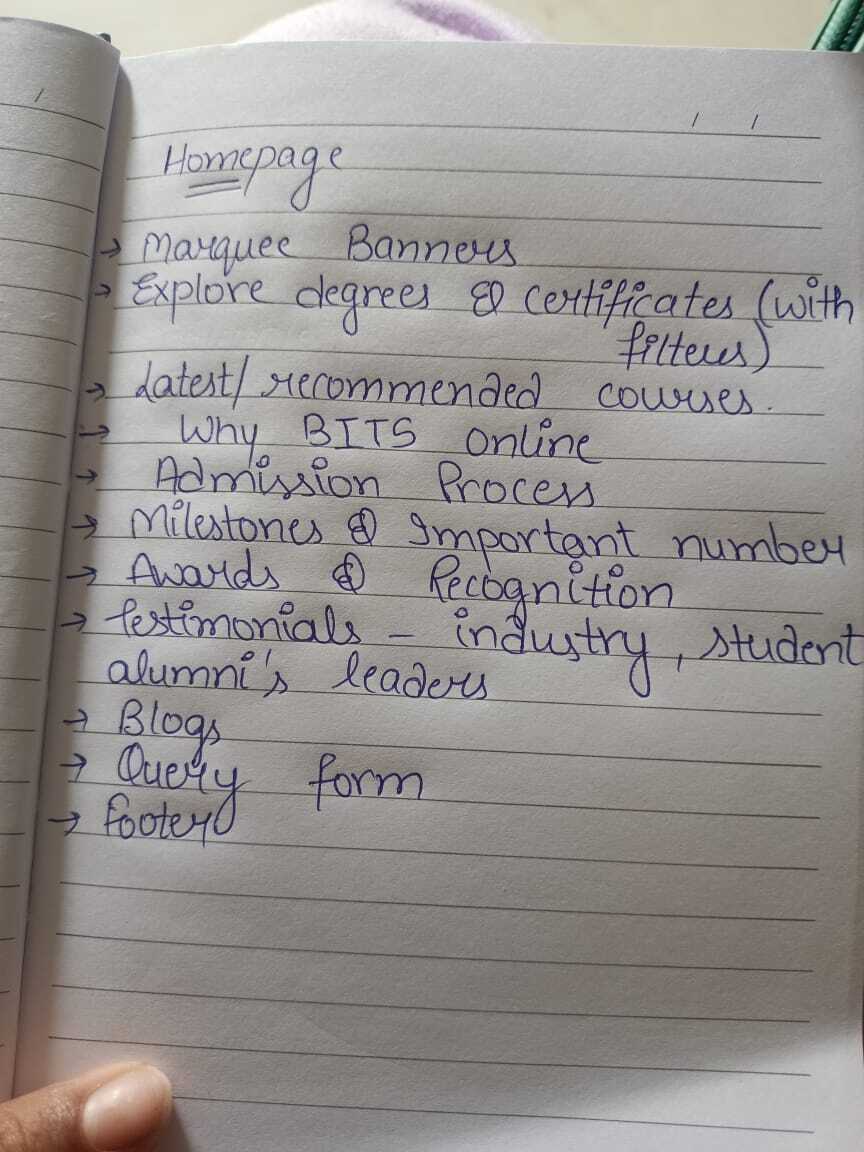 Homepage
→ Marquee Banners
→ Explore degrees & certificates (with
filters)
→ Latest/ recommended courses.
→ Why BITS online
→ Admission Process
→ Milestones & Important number
→ Awards & Recognition
→ Testimonials - industry, student
alumni's leaders
→ Blogs
→ Query form
→ footer